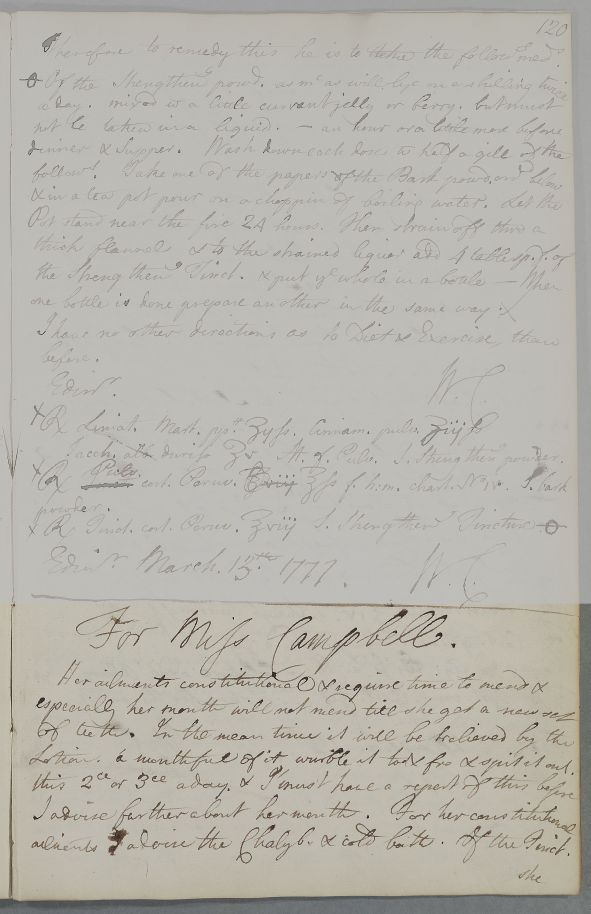 120
Therefore to remedy this he is to take the follow.g med.
Of the Strengthen.g powd. as m. as will lye on a shilling twice
a day. mixed w a little currant jelly or berry. but must
not be taken in a liquid. — an hour or a little more before
dinner & Supper. Wash down each dose w half a gill of the
follow.g Take one of the papers of the Bark powd. ord. below
& in a tea pot pour on a choppin of boiling water. Let the
Pot stand near the fire 24 hours. Then strain off thro a
thick flannel & to the strained liquor add 4 tablesp.f. of
the Strengthen.g Tinct. & put ye whole in a bottle — When
one bottle is done prepare another in the same way.
I have no other directions as to Diet & Exercise than
before.
Edinr. W. C.
℞ Limat. Mart. ppt ʒyſs. Cinnam. pulv.
Sacch. alb. M. f. Pulv. S. Strengthen.g powder.
℞ Pulv. cort. Peruv. f. h:m. chart. No. iv. S. bark
powder.
℞ Tinct. cort. Peruv. S. Strengthen.g Tincture
Edinr. March. 13th 1777. W. C.
For Miss Campbell.
Her ailments constitutional & require time to mend &
especially her mouth will not mend till she get a new set
of teeth. In the mean time it will be relieved by the
Lotion. a mouthful of it wurble it to & fro & spit it out.
this 2ce or 3ce a day. & I must have a report of this before
I advise farther about her mouth. For her constitutional
ailments I advise the Chalyb. & cold bath. Of the Tinct.
she